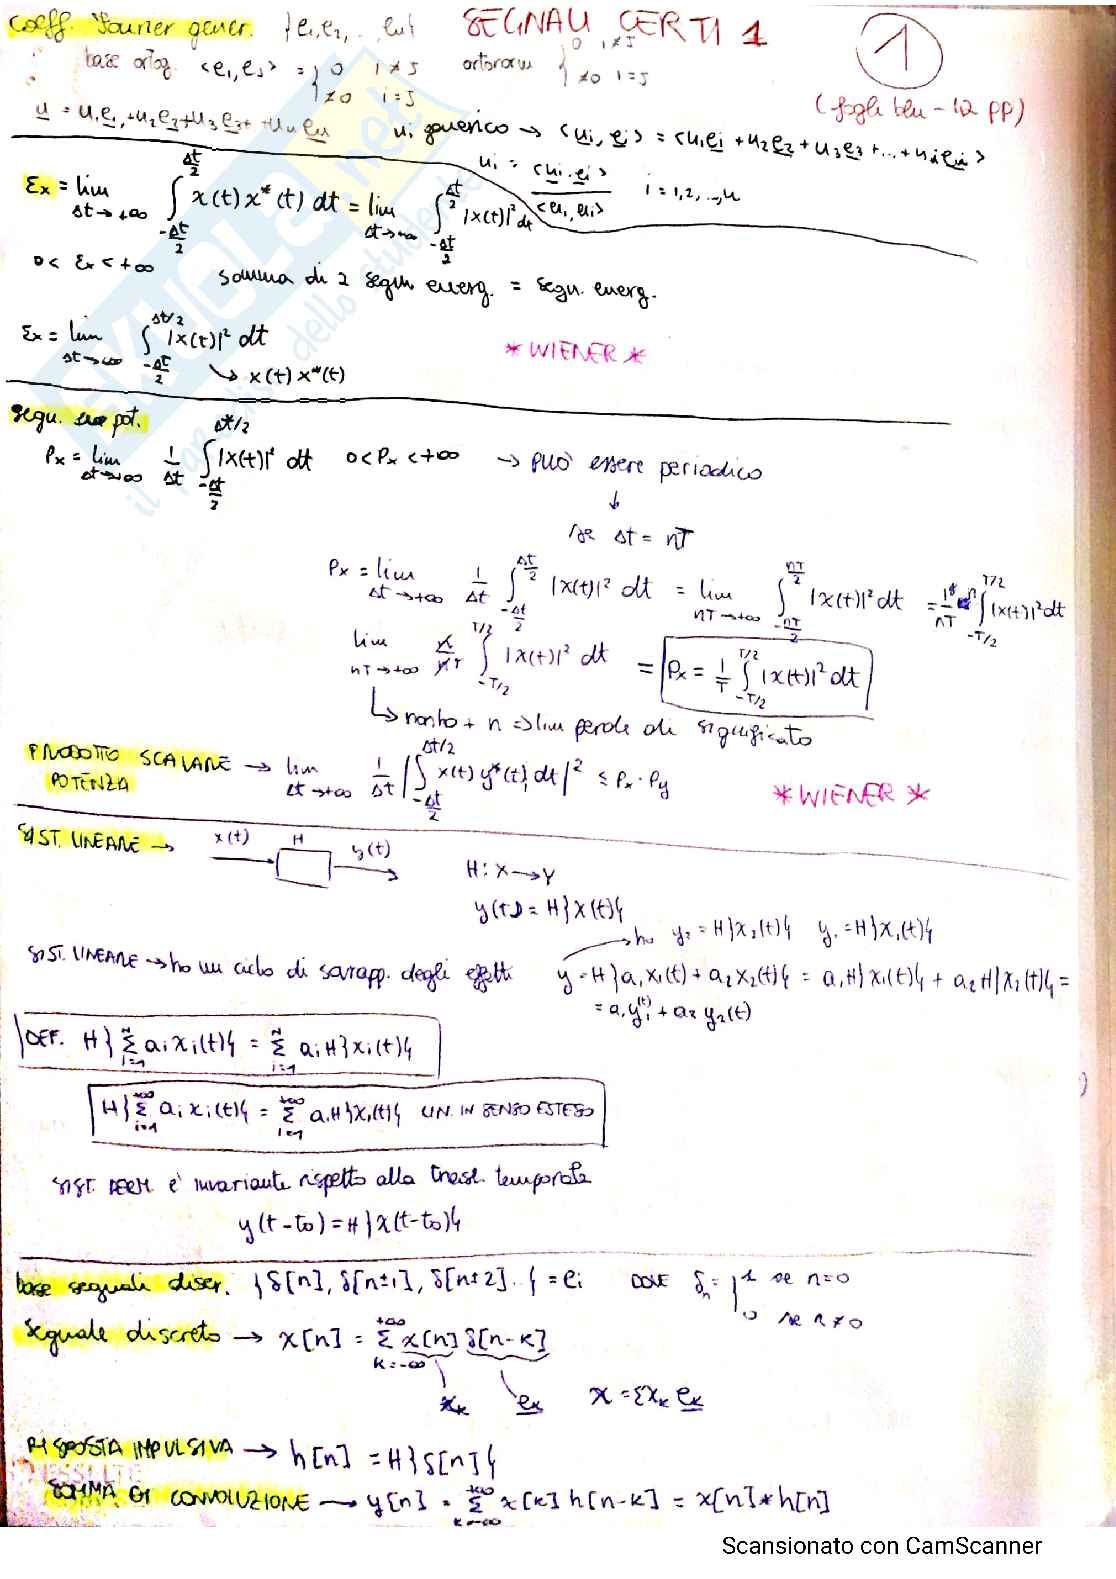 coeff. Fourier gener. {e1, e2, .. en} SEGNALI CERTI 1
1
base ortog. <ei, ej> = { 0 i≠j ≠0 i=j ortonorm { 0 i≠j ≠0 i=j
(fogli blu - 12 pp)
u = u1e1 + u2e2 + u3e3 + + un en
ui generico → <ui, ei> = <u1e1 + u2e2 + u3e3 + ... + unen>
ui = <u, ei> / <ei, ei> i = 1,2, .., n
Ex = lim Δt→+∞ ∫ -Δt/2 Δt/2 x(t) x*(t) dt = lim Δt→+∞ ∫ -Δt/2 Δt/2 |x(t)|² dt
0 < Ex < +∞ somma di 2 segn energ. = segn. energ.
Ex = lim Δt→∞ ∫ -Δt/2 Δt/2 |x(t)|² dt
↳ x(t) x*(t)
* WIENER *
segn. pot.
Px = lim Δt→+∞ 1/Δt ∫ -Δt/2 Δt/2 |x(t)|² dt 0 < Px < +∞ → PUÒ essere periodico
↓
se Δt = nT
Px = lim Δt→+∞ 1/Δt ∫ -Δt/2 Δt/2 |x(t)|² dt = lim nT→+∞ ∫ -nT/2 nT/2 |x(t)|² dt = 1/nT n ∫ -T/2 T/2 |x(t)|² dt
lim nT→+∞ n/nT ∫ -T/2 T/2 |x(t)|² dt = Px = 1/T ∫ -T/2 T/2 |x(t)|² dt
↳ non ho + n ⇒ lim perde di significato
PRODOTTO SCALARE → lim Δt→+∞ 1/Δt | ∫ -Δt/2 Δt/2 x(t) y*(t) dt |² ≤ Px · Py
POTENZA
* WIENER *
SIST. LINEARE → x(t) H y(t)
H: X → Y
y(t) = H{x(t)}
ho y2 = H{x2(t)} y1 = H{x1(t)}
SIST. LINEARE → ho un ciclo di sovrapp. degli effetti y = H{a1 x1(t) + a2 x2(t)} = a1 H{x1(t)} + a2 H{x2(t)} =
= a1 y1(t) + a2 y2(t)
DEF. H{ Σ i=1 N ai xi(t)} = Σ i=1 N ai H{xi(t)}
H{ Σ i=1 +∞ ai xi(t)} = Σ i=1 +∞ ai H{xi(t)} LIN. IN SENSO ESTESO
SIST. PERM. è invariante rispetto alla trasl. temporale
y(t-t0) = H{x(t-t0)}
base segnali discr. {δ[n], δ[n±1], δ[n±2] ..} = ei DOVE δn = { 1 se n=0
0 se n≠0
Segnale discreto → x[n] = Σ k=-∞ +∞ x[n] δ[n-k]
xk ek x = Σ xk ek
RISPOSTA IMPULSIVA → h[n] = H{δ[n]}
SOMMA DI CONVOLUZIONE → y[n] = Σ k=-∞ +∞ x[k] h[n-k] = x[n] * h[n]
SKUOLA.net
il paradiso dello studente
Scansionato con CamScanner